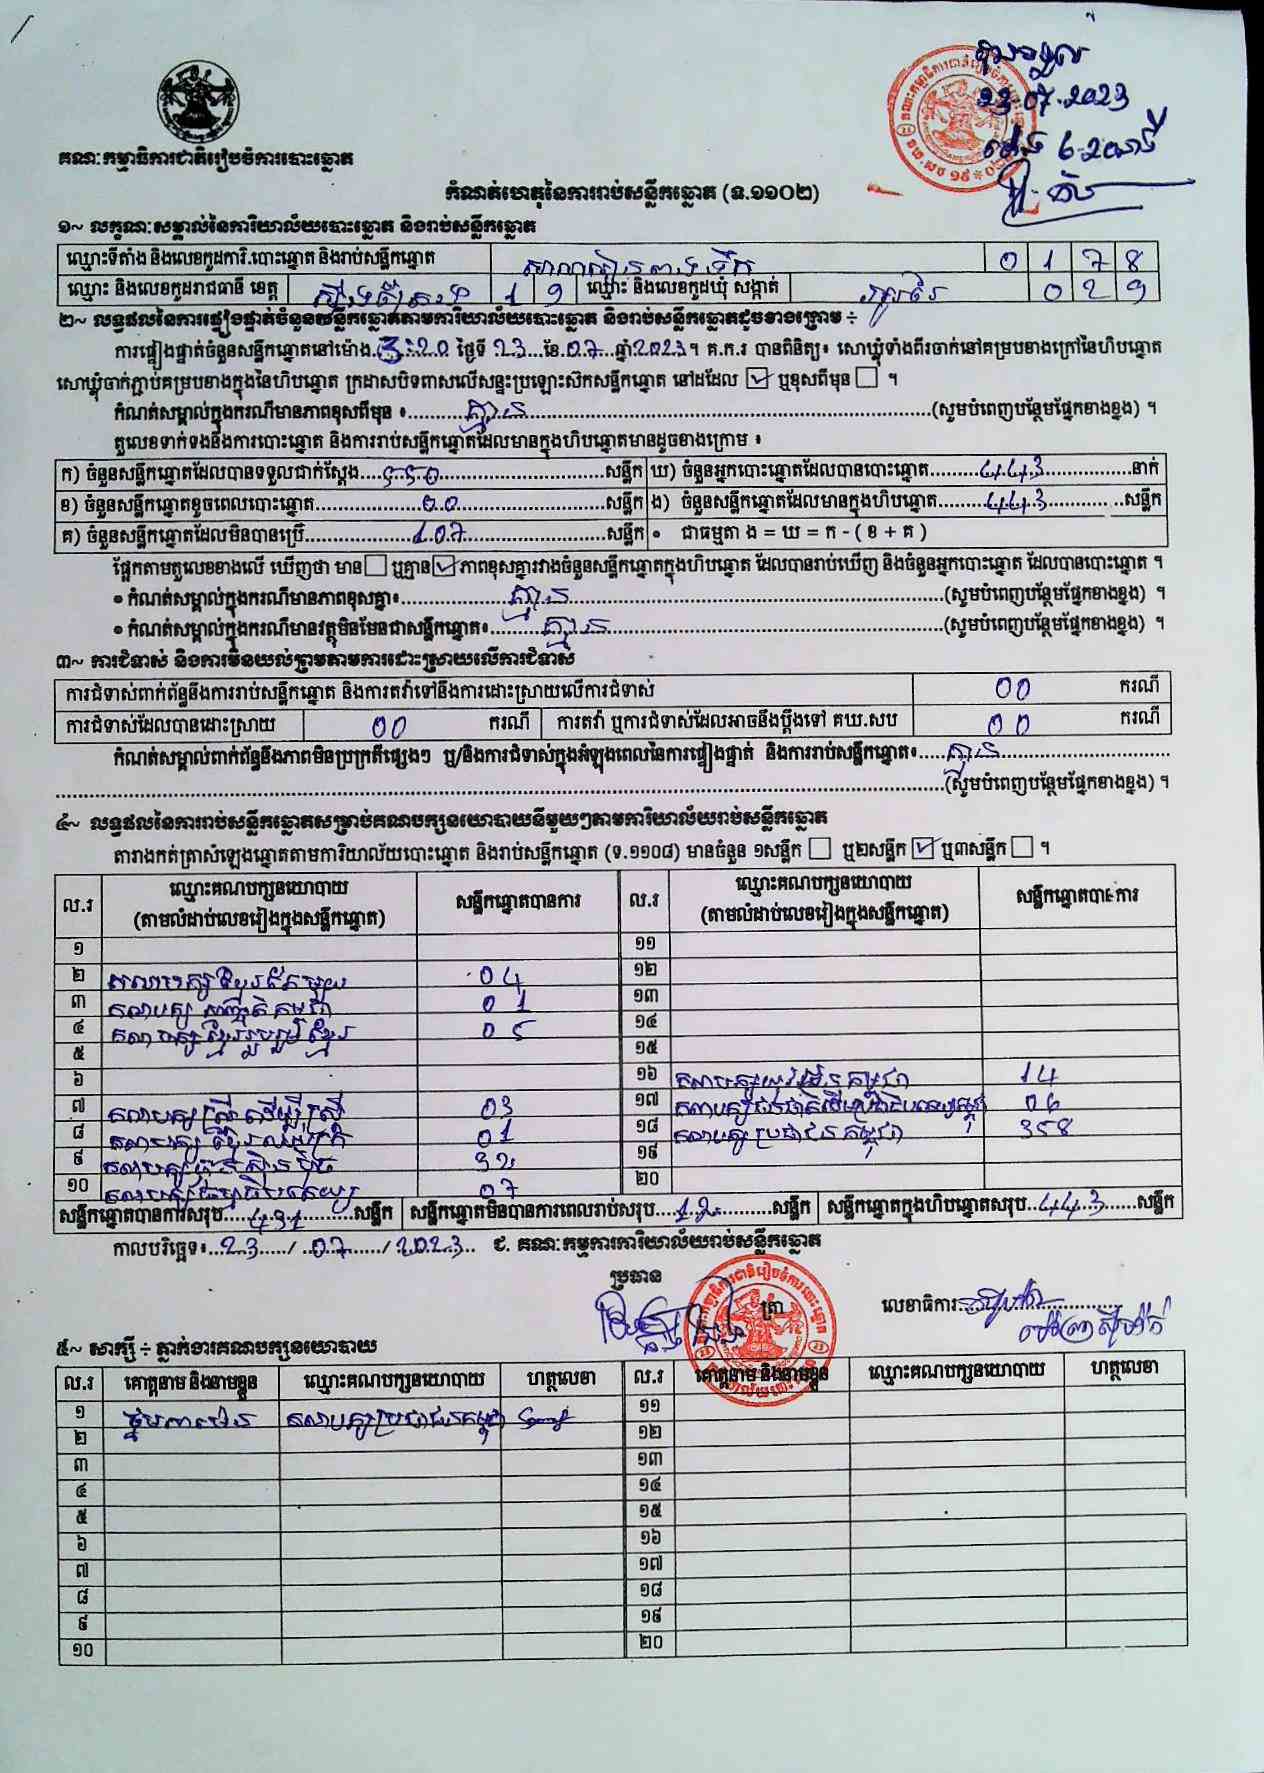 គណៈកម្មាធិការជាតិរៀបចំការបោះឆ្នោត
23.07.2023
កំណត់ហេតុនៃការរាប់សន្លឹកឆ្នោត (ទ.១១០២)
១~ លក្ខណៈសម្គាល់នៃការិយាល័យបោះឆ្នោត និងរាប់សន្លឹកឆ្នោត
ឈ្មោះទីតាំង និងលេខកូដការិ.បោះឆ្នោត និងរាប់សន្លឹកឆ្នោត 0 1 7 8
ឈ្មោះ និងលេខកូដរាជធានី ខេត្ត ស្ទឹងត្រែង 1 9 ឈ្មោះ និងលេខកូដឃុំ សង្កាត់ 0 2 9
២~ លទ្ធផលនៃការផ្ទៀងផ្ទាត់ចំនួនសន្លឹកឆ្នោតតាមការិយាល័យបោះឆ្នោត និងរាប់សន្លឹកឆ្នោតដូចខាងក្រោម ÷
ការផ្ទៀងផ្ទាត់ចំនួនសន្លឹកឆ្នោតនៅម៉ោង 3:20 ថ្ងៃទី 23 ខែ 07 ឆ្នាំ 2023។ គ.ក.រ បានពិនិត្យ៖ សោឃ្លុំទាំងពីរចាក់នៅគម្របខាងក្រៅនៃហិបឆ្នោត
សោឃ្លុំចាក់ភ្ជាប់គម្របខាងក្នុងនៃហិបឆ្នោត ក្រដាសបិទពាសលើសន្ទះប្រឡោះស៊កសន្លឹកឆ្នោត នៅដដែល ☑ ឬខុសពីមុន ☐ ។
កំណត់សម្គាល់ក្នុងករណីមានភាពខុសពីមុន ៖ គ្មាន (សូមបំពេញបន្ថែមផ្នែកខាងខ្នង) ។
តួលេខទាក់ទងនឹងការបោះឆ្នោត និងការរាប់សន្លឹកឆ្នោតដែលមានក្នុងហិបឆ្នោតមានដូចខាងក្រោម ៖
ក) ចំនួនសន្លឹកឆ្នោតដែលបានទទួលជាក់ស្តែង 550 សន្លឹក ឃ) ចំនួនអ្នកបោះឆ្នោតដែលបានបោះឆ្នោត 443 នាក់
ខ) ចំនួនសន្លឹកឆ្នោតខូចពេលបោះឆ្នោត 00 សន្លឹក ង) ចំនួនសន្លឹកឆ្នោតដែលមានក្នុងហិបឆ្នោត 443 សន្លឹក
គ) ចំនួនសន្លឹកឆ្នោតដែលមិនបានប្រើ 107 សន្លឹក ៖ ជាធម្មតា ង = ឃ = ក - ( ខ + គ )
ផ្អែកតាមតួលេខខាងលើ ឃើញថា មាន ☐ ឬគ្មាន ☑ ភាពខុសគ្នារវាងចំនួនសន្លឹកឆ្នោតក្នុងហិបឆ្នោត ដែលបានរាប់ឃើញ និងចំនួនអ្នកបោះឆ្នោត ដែលបានបោះឆ្នោត ។
• កំណត់សម្គាល់ក្នុងករណីមានភាពខុសគ្នា៖ គ្មាន (សូមបំពេញបន្ថែមផ្នែកខាងខ្នង) ។
• កំណត់សម្គាល់ក្នុងករណីមានវត្ថុមិនមែនជាសន្លឹកឆ្នោត៖ គ្មាន (សូមបំពេញបន្ថែមផ្នែកខាងខ្នង) ។
៣~ ការជំទាស់ និងការមិនយល់ព្រមតាមការដោះស្រាយលើការជំទាស់
ការជំទាស់ពាក់ព័ន្ធនឹងការរាប់សន្លឹកឆ្នោត និងការតវ៉ាទៅនឹងការដោះស្រាយលើការជំទាស់ 00 ករណី
ការជំទាស់ដែលបានដោះស្រាយ 00 ករណី ការតវ៉ា ឬការជំទាស់ដែលអាចនឹងប្តឹងទៅ គឃ.សប 00 ករណី
កំណត់សម្គាល់ពាក់ព័ន្ធនឹងភាពមិនប្រក្រតីផ្សេងៗ ឬ/និងការជំទាស់ក្នុងអំឡុងពេលនៃការផ្ទៀងផ្ទាត់ និងការរាប់សន្លឹកឆ្នោត៖ គ្មាន
(សូមបំពេញបន្ថែមផ្នែកខាងខ្នង) ។
៤~ លទ្ធផលនៃការរាប់សន្លឹកឆ្នោតសម្រាប់គណបក្សនយោបាយនីមួយៗតាមការិយាល័យរាប់សន្លឹកឆ្នោត
តារាងកត់ត្រាសំឡេងឆ្នោតតាមការិយាល័យបោះឆ្នោត និងរាប់សន្លឹកឆ្នោត (ទ.១១០៨) មានចំនួន ១សន្លឹក ☐ ឬ២សន្លឹក ☑ ឬ៣សន្លឹក ☐ ។
ល.រ ឈ្មោះគណបក្សនយោបាយ (តាមលំដាប់លេខរៀងក្នុងសន្លឹកឆ្នោត) សន្លឹកឆ្នោតបានការ ល.រ ឈ្មោះគណបក្សនយោបាយ (តាមលំដាប់លេខរៀងក្នុងសន្លឹកឆ្នោត) សន្លឹកឆ្នោតបានការ
១ ១១
២ គណបក្សខ្មែរតែមួយ 04 ១២
៣ គណបក្ស សញ្ជាតិកម្ពុជា 01 ១៣
៤ គណបក្សខ្មែររួបរួមខ្មែរ 05 ១៤
៥ ១៥
៦ ១៦ គណបក្សយុវជនកម្ពុជា 14
៧ គណបក្សស្ត្រីដើម្បីស្ត្រី 03 ១៧ 06
៨ គណបក្ស 01 ១៨ គណបក្សប្រជាជនកម្ពុជា 358
៩ គណបក្សហ៊្វុនស៊ិនប៉ិច 32 ១៩
១០ គណបក្សធម្មាធិបតេយ្យ 07 ២០
សន្លឹកឆ្នោតបានការសរុប 431 សន្លឹក សន្លឹកឆ្នោតមិនបានការពេលរាប់សរុប 12 សន្លឹក សន្លឹកឆ្នោតក្នុងហិបឆ្នោតសរុប 443 សន្លឹក
កាលបរិច្ឆេទ៖ 23 / 07 / 2023 ជ. គណៈកម្មការការិយាល័យរាប់សន្លឹកឆ្នោត
ប្រធាន ត្រា លេខាធិការ
៥~ សាក្សី ÷ ភ្នាក់ងារគណបក្សនយោបាយ
ល.រ គោត្តនាម និងនាមខ្លួន ឈ្មោះគណបក្សនយោបាយ ហត្ថលេខា ល.រ គោត្តនាម និងនាមខ្លួន ឈ្មោះគណបក្សនយោបាយ ហត្ថលេខា
១ គណបក្សប្រជាជនកម្ពុជា ១១
២ ១២
៣ ១៣
៤ ១៤
៥ ១៥
៦ ១៦
៧ ១៧
៨ ១៨
៩ ១៩
១០ ២០